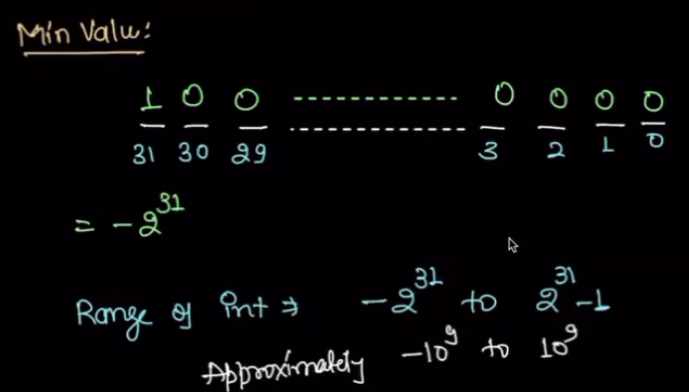 Min Value:
1 0 0 ------------------ 0 0 0 0
31 30 29 ------------------ 3 2 1 0
= -2^31
Range of int ⇒ -2^31 to 2^31 -1
Approximately -10^9 to 10^9